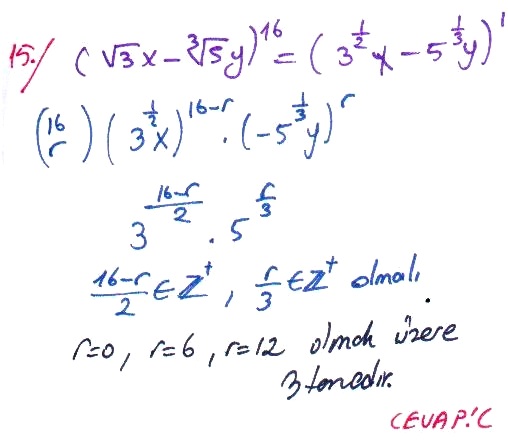 15./ (√3x - ∛5y)^16 = (3^(1/2)x - 5^(1/3)y)^1
(16 r) (3^(1/2)x)^(16-r) . (-5^(1/3)y)^r
3^((16-r)/2) . 5^(r/3)
(16-r)/2 ∈ Z⁺, r/3 ∈ Z⁺ olmalı.
r=0, r=6, r=12 olmak üzere
3 tanedir.
CEVAP: C